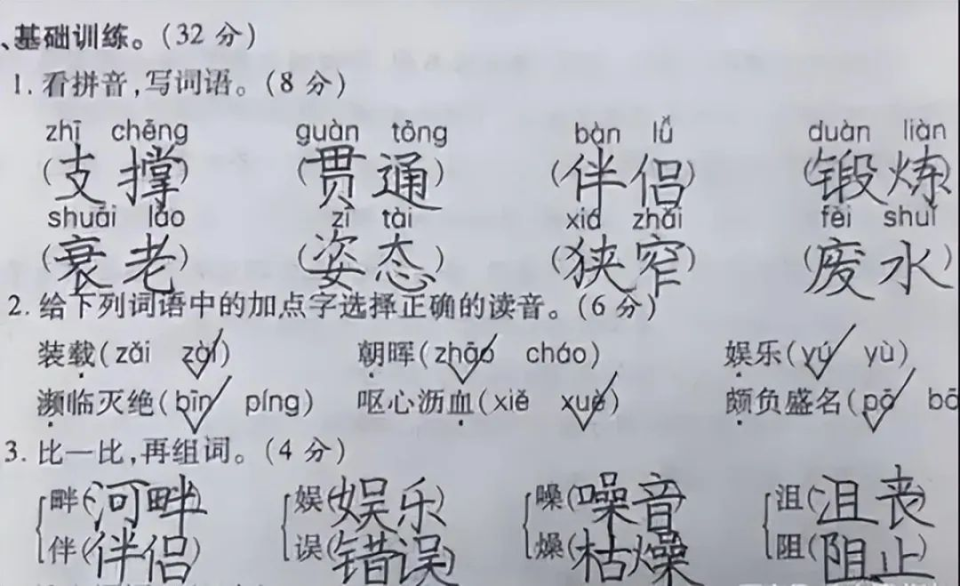 、基础训练。(32 分)
1. 看拼音,写词语。(8 分)
zhī chēng guàn tōng bàn lǚ duàn liàn
(支撑) (贯通) (伴侣) (锻炼)
shuāi lǎo zī tài xiá zhǎi fèi shuǐ
(衰老) (姿态) (狭窄) (废水)
2. 给下列词语中的加点字选择正确的读音。(6 分)
装载(zǎi zài) 朝晖(zhāo cháo) 娱乐(yú yù)
濒临灭绝(bīn píng) 呕心沥血(xiě xuè) 颇负盛名(pō bō
3. 比一比,再组词。(4 分)
畔(河畔) 娱(娱乐) 噪(噪音) 沮(沮丧)
伴(伴侣) 误(错误) 燥(枯燥) 阻(阻止)